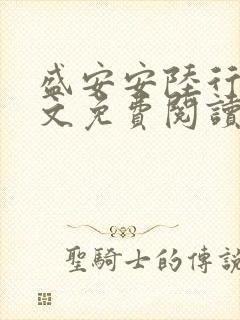 盛安安陸行
文免費閱讀
聖騎士的傳說